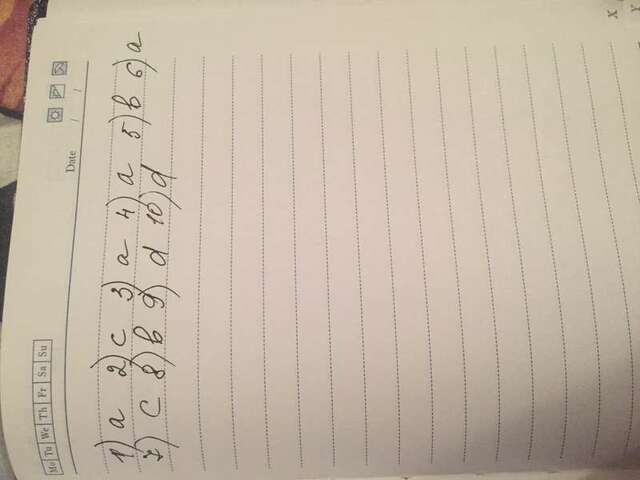 Mo Tu We Th Fr Sa Su
Date / /
1) a 2) c 3) a 4) a 5) b 6) a
7) c 8) b 9) d 10) d
X
Y